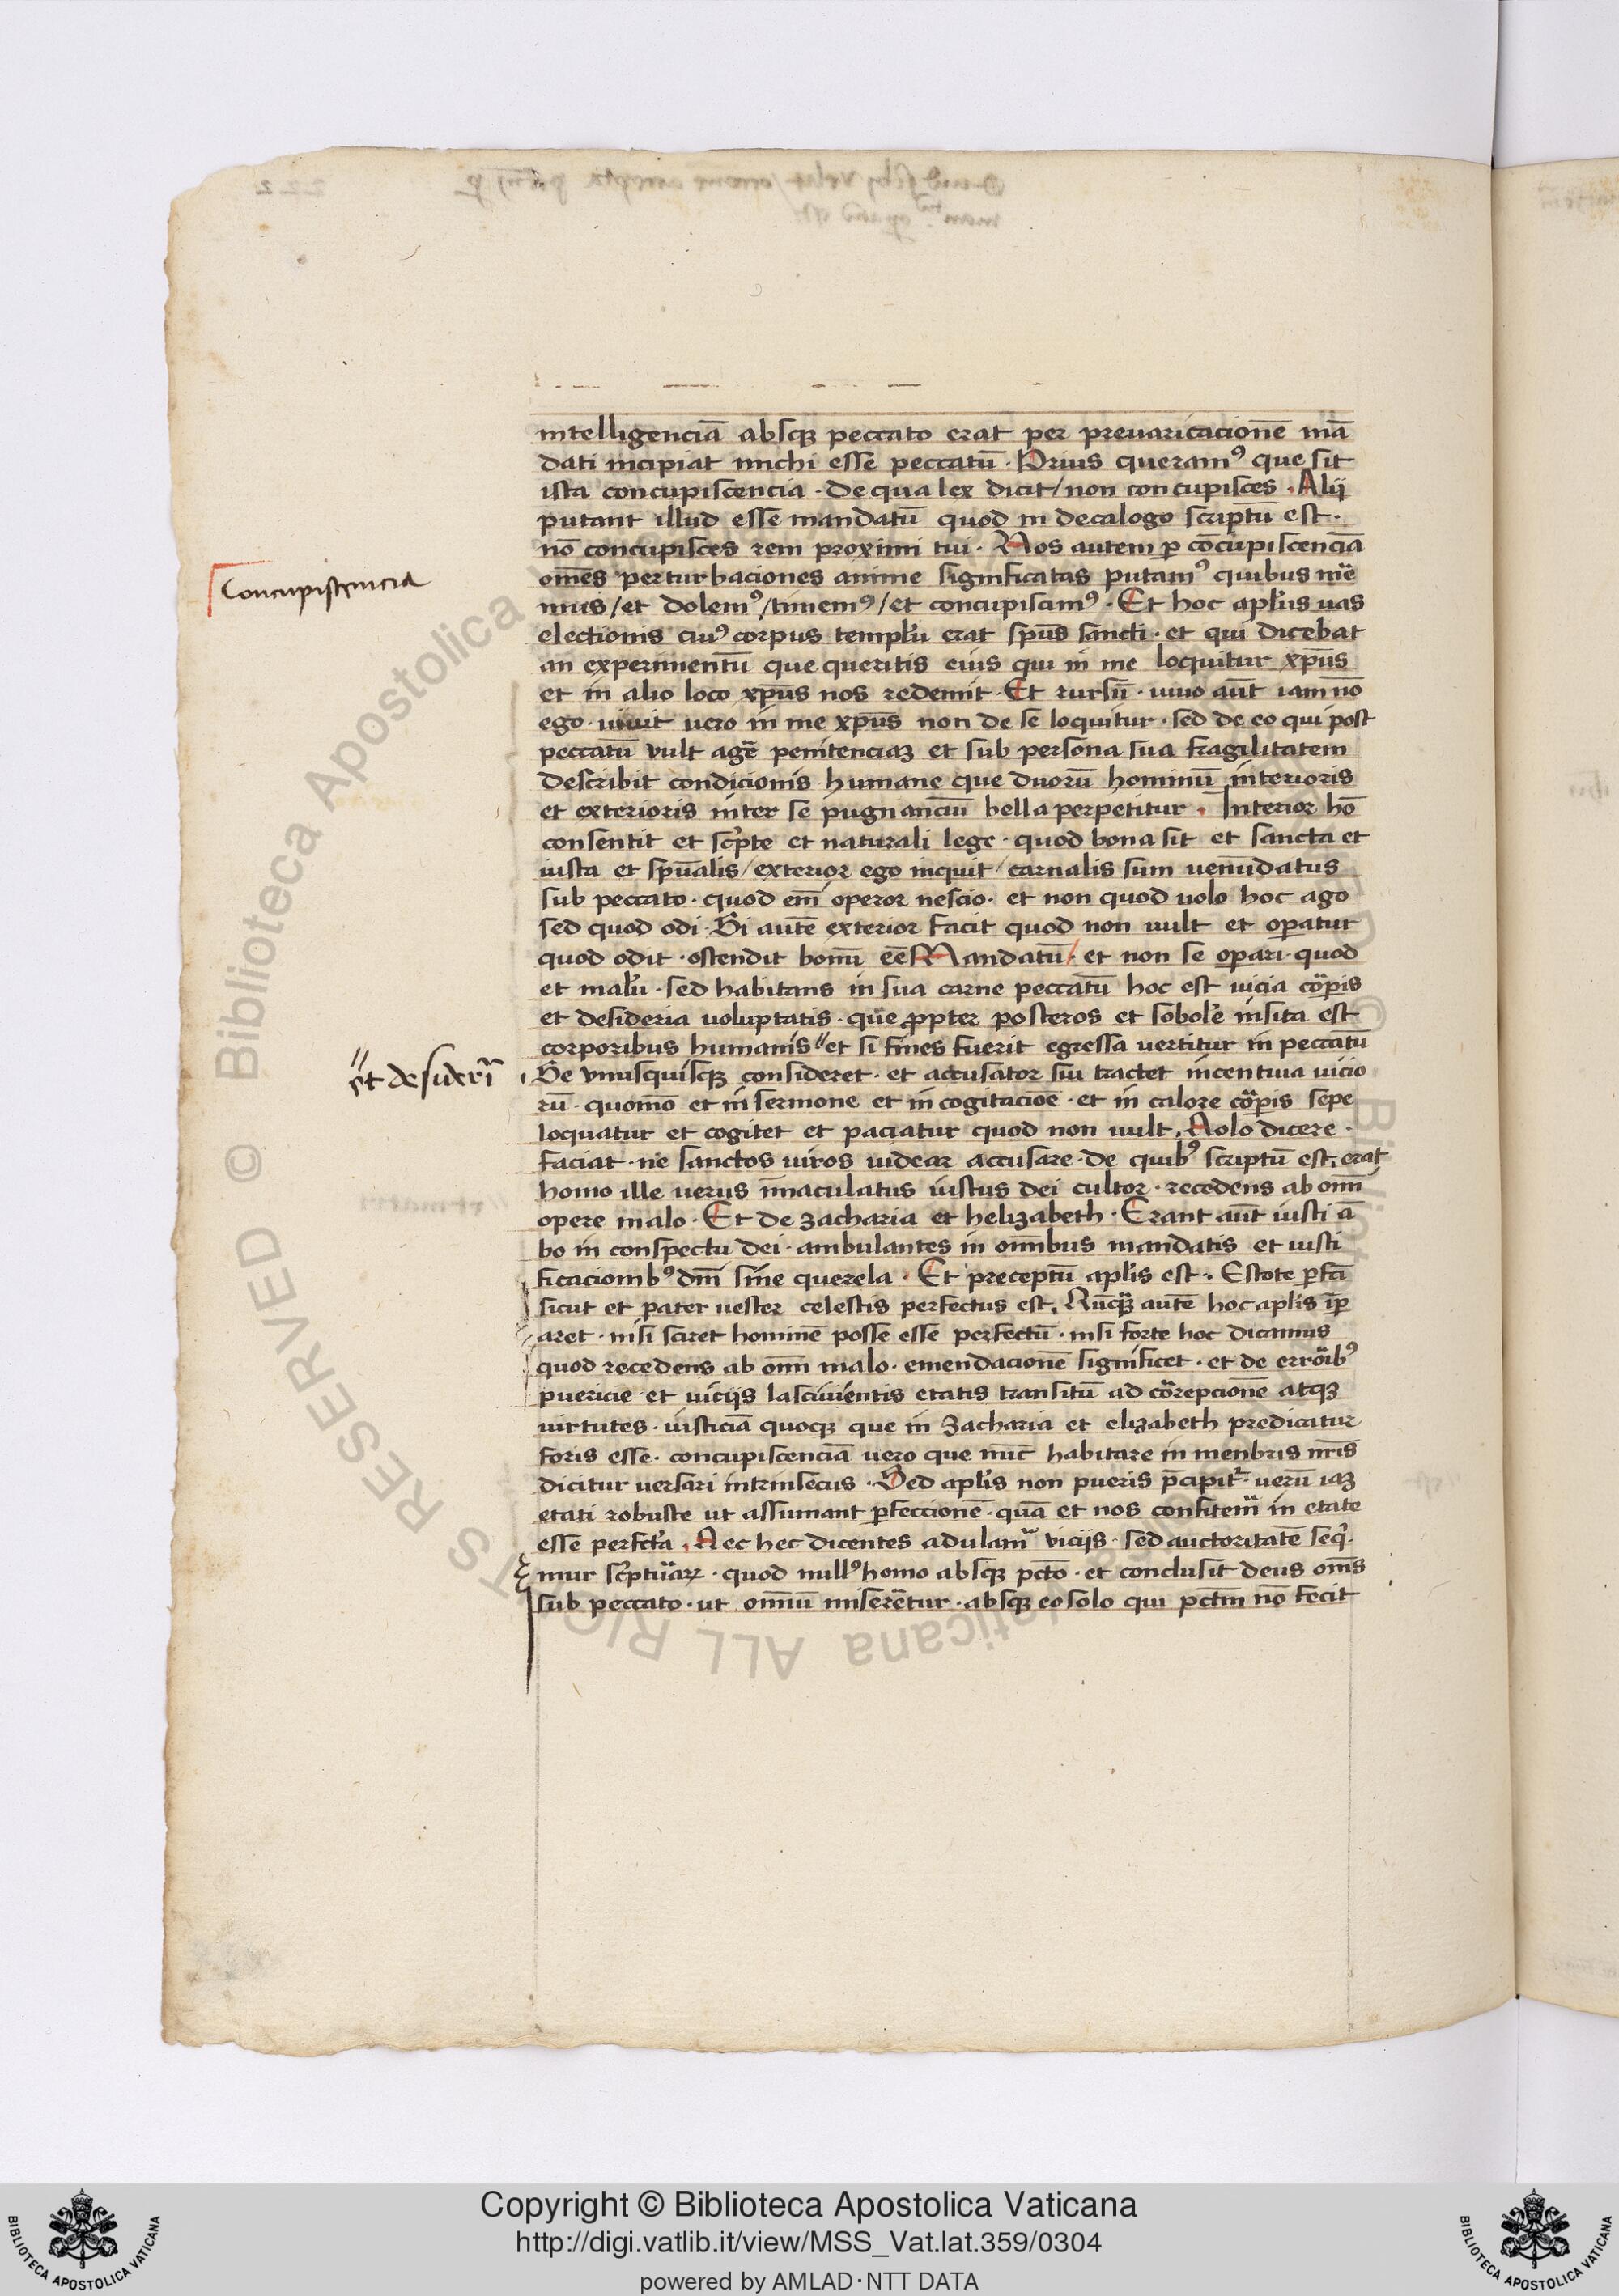 intelligenciā absqꝫ peccato erat per preuaricacionē mā
dati incipiat michi esse peccatū · Prius queramꝰ que sit
ista concupiscencia · de qua lex dicit / non concupisces · Alij
putant illud esse mandatū quod in decalogo scriptu est ·
nō concupisces rem proximi tui · Nos autem ꝑ cōcupiscenciā
Concupiscencia
om̄es perturbaciones anime significatas putamꝰ quibus mē
mus / et dolemꝰ / timemꝰ / et concupiscimꝰ · Et hoc apl̓us uas
electionis ciuꝰ corpus templū erat sp̄us sancti · et qui dicebat
an experimentū que queritis eius qui in me loquitur xp̄us
et in alio loco xp̄us nos redemit · Et rursū · uiuo aūt iam nō
ego · uiuit uero in me xp̄us non de se loquitur · sed de eo qui post
peccatū vult agē penitenciaꝫ et sub persona sua fragilitatem
describit condicionis humane que duorū hominū interioris
et exterioris inter se pugnanciū bella perpetitur · Interior hō
consentit et sc̓pte et naturali lege · quod bona sit et sancta et
iusta et sp̄ualis / exterior ego inquit / carnalis sum uenūdatus
sub peccato · quod em̄ operor nescio · et non quod uolo hoc ago
sed quod odi · Si autē exterior facit quod non uult et oꝑatur
quod odit · ostendit bonū eē Mandatū / et non se oꝑari quod
et malū · sed habitans in sua carne peccatū hoc est uicia cor̄pis
et desideria uoluptatis · que ꝓpter posteros et sobolē insita est
corporibus humanis // et si fines fuerit egressa uertitur in peccatū
// et desideri
Se vnusquisqꝫ consideret · et accusator sui tractet incentiua uicio
rū · quomō et in sermone et in cogitacioē · et in calore cor̄pis sepe
loquatur et cogitet et paciatur quod non uult · Nolo dicere ·
faciat · ne sanctos uiros uidear accusare · de quibꝰ scriptū est · erat
homo ille uerus īmaculatus iustus dei cultor · recedens ab om̄i
opere malo · Et de zacharia et helizabeth · Erant aūt iusti ā
bo in conspectu dei · ambulantes in om̄ibus mandatis et iusti
ficacionibꝰ dn̄i sine querela · Et preceptū apl̓is est · Estote ꝑfcī
sicut et pater uester celestis perfectus est · Nūqꝫ autē hoc aplis īꝑ
aret · nisi sciret hominē posse esse perfectū · nisi forte hoc dicamus
quod recedens ab om̄i malo · emendacionē significet · et de errōibꝰ
puericie · et uicijs lasciuientis etatis transitū ad correpcionē atqꝫ
uirtutes · iusticiā quoqꝫ que in Zacharia et elizabeth predicatur
foris esse · concupiscenciā uero que nūc habitare in menbris nr̄is
dicitur uersari intrinsecus · Sed apl̓is non pueris p̄cipit̓ · uerū iaꝫ
etati robuste ut assumant ꝑfeccionē · quā et nos confitem̄ in etate
esse perfcta · Nec hec dicentes adulam̄ vicijs · sed auctoritatē seq̓
mur sc̓ptuaꝝ · quod nullꝰ homo absqꝫ pctō · et conclusit deus om̄s
sub peccato · ut om̄iū misereretur · absqꝫ eo solo qui pctm̄ nō fecit
Copyright © Biblioteca Apostolica Vaticana
http://digi.vatlib.it/view/MSS_Vat.lat.359/0304
powered by AMLAD·NTT DATA
BIBLIOTECA APOSTOLICA VATICANA
BIBLIOTECA APOSTOLICA VATICANA